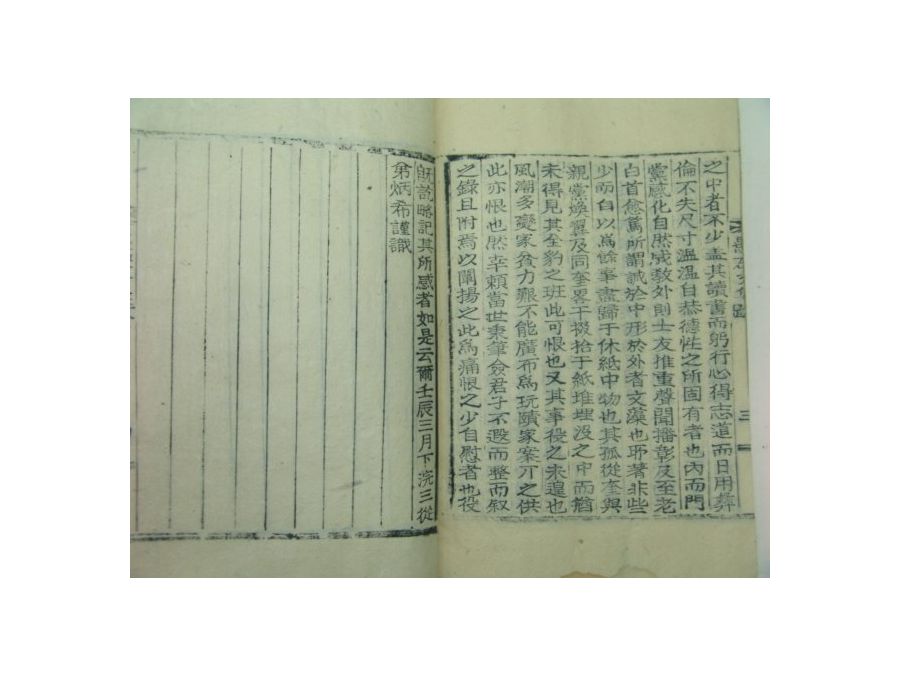 之中者不少盖其讀書而躬行心得志道而日用彛
倫不失尺寸溫溫自恭德性之所固有者也內而門
黨感化自然成教外則士友推重聲聞播彰及至老
白首愈篤所謂誠於中形於外者文藻也耶著非些
少而自以爲餘事盡歸于休紙中物也其孤從奎與
親黨煥翼及同奎畧干掇拾于紙堆埋沒之中而猶
未得見其全豹之班此可恨也又其事役之未遑也
風潮多變家貧力艱不能廣布爲玩賾家案丌之供
此亦恨也然幸賴當世秉筆僉君子不遐而整而叙
之錄且附焉以闡揚之此爲痛恨之少自慰者也役
旣訖略記其所感者如是云爾壬辰三月下浣三從
弟炳希謹識
三